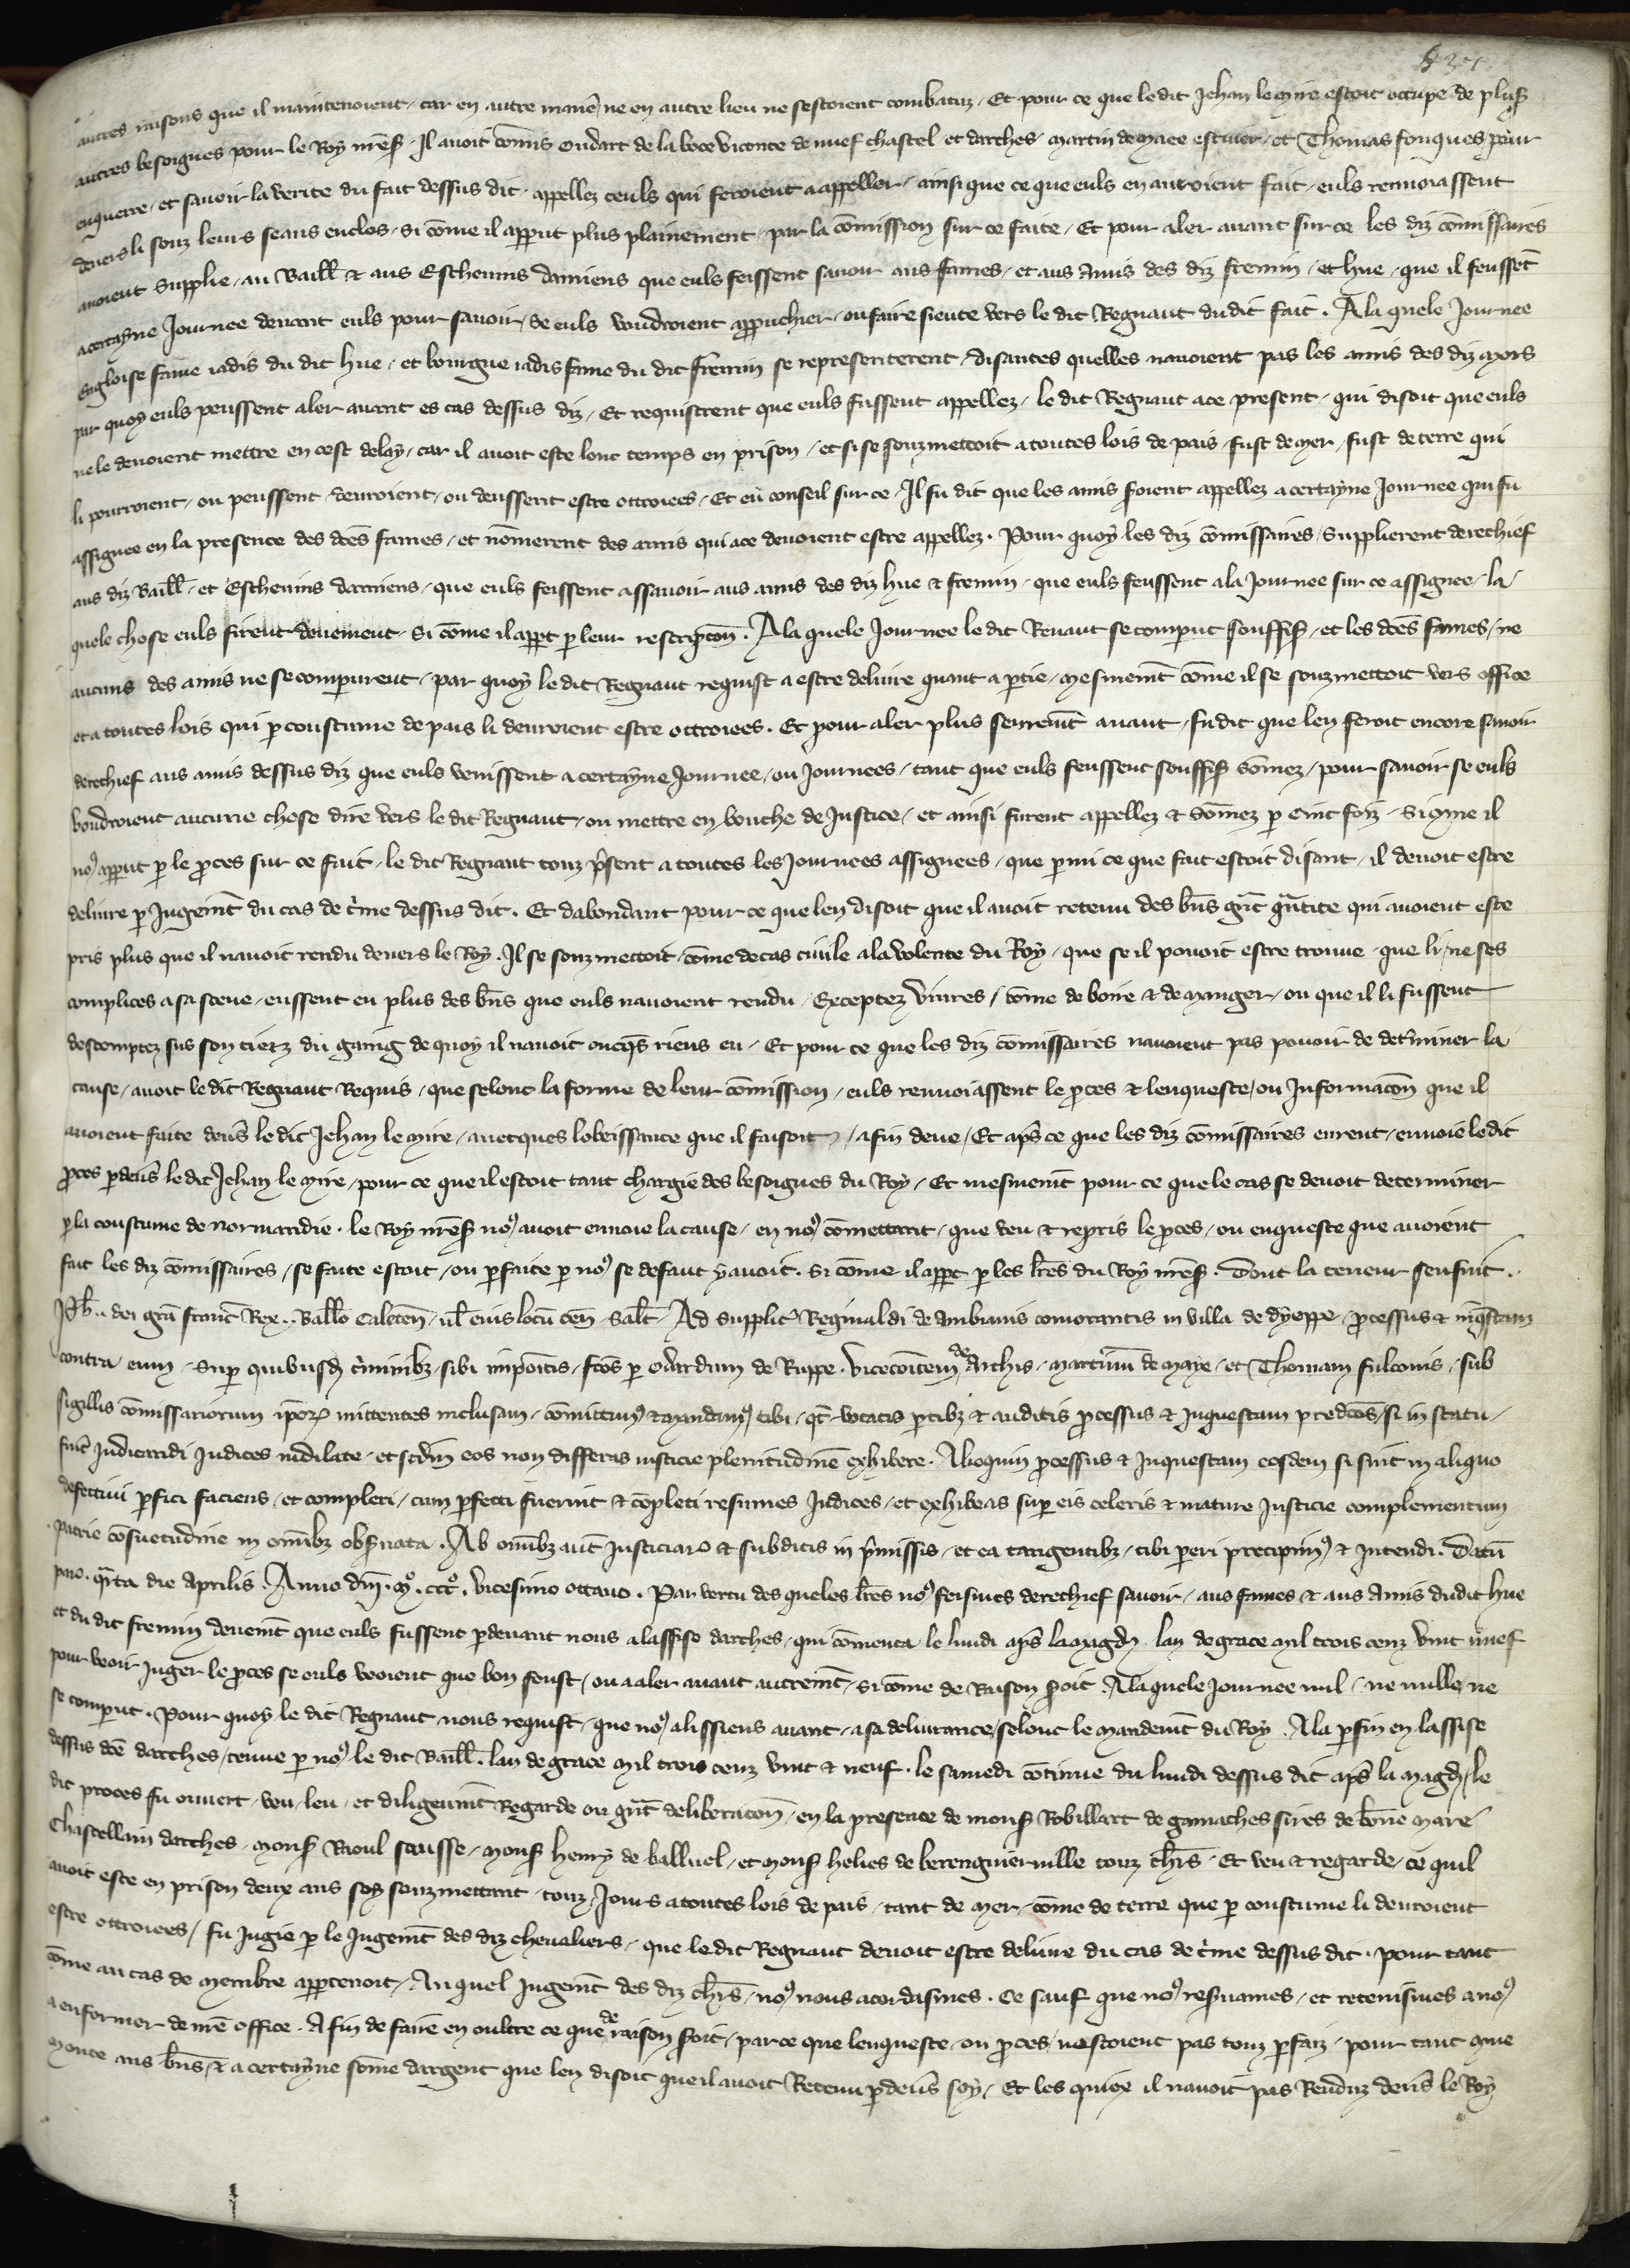 autres raisons que il maintenoient / car en autre maniē ne en autre lieu ne sestoient combatuz / Et pour ce que ledit Jehan le Mire estoit occupe de plus̄
autres besoignes pour le Roy nr̄es̄ . Il avoit cōmis Oudart de la Roce viconte de nuef chastel et darches / Martin de Maee escuier / et Thomas fouques pour
enquerre / et savoir la verite du fait dessus dit / appellez ceuls qui feroient a appeller / ainsi que ce que euls en auroient fait / euls renvoiassent
devers li souz leurs seaus enclos / si cōme il apparut plus plainement / par la cōmission sur ce faite / Et pour aler avant sur ce les diz cōmissaires
avoient supplie / au Baill̄ & aus Eschevins damiens que euls feissent savoir aus fames / et aus Amis des diz fremin / et hue / que il feussēt
a certayne Journee devant euls pour savoir / se euls voudroient approuchier / ou faire sieute vers le dit Regnaut dudit fait . A la quele Journee
Engloise fame iadis du dit hue / et bourgue iadis fame du dit fremin se representerent / disantes quelles navoient pas les amis des diz mors
par quoy euls peussent aler avant es cas dessus diz / Et requistrent que euls fussent appellez / le dit Regnaut a ce present / qui disoit que euls
ne le devoient mettre en cest delay / car il avoit este lonc temps en prison / et si se souzmettoit a toutes lois de pais / fust de mer / fust de terre qui
li pourroient / ou peussent / devroient / ou deussent estre ottroiees / Et eu conseil sur ce / Il fu dit que les amis s̄oient appellez a certayne Journee qui fu
assignee en la presence des dc̄es fames / et nōmerent des amis qui a ce devoient estre appellez . Pour quoy les diz cōmissaires / Supplierent derechief
aus diz Baill̄ / et Eschevins damiens / que euls feissent assavoir aus amis des diz hue & fremin / que euls feussent a la Journee sur ce assignee / la
quele chose euls firent deuement / Si cōme il app̄t p̄ leur rescripcōn . A la quele Journee le dit Renaut se comparut souffis̄ / et les dc̄es fames / ne
aucuns des amis ne se comparurent / par quoy le dit Regnaut requist a estre delivre quant a partie / mesmemēt cōme il se souzmettoit vers office
et a toutes lois qui p̄ coustume de pais li devroient estre ottroiees . Et pour aler plus seuremēt avant / fu dit que len feroit encore savoir
derechief aus amis dessus diz que euls venissent a certayne Journee / ou Journees / tant que euls feussent souffis̄ sōmez / pour savoir se euls
voudroient aucune chose dire vers le dit Regnaut / ou mettre en bouche de Justice / et ainsi furent appellez & sōmez p̄ cinc foiz / Si cōme il
noꝰ apparut p̄ le p̄ces sur ce fait / le dit Regnaut touz p̄sent a toutes les Journees assignees / que p̄mi ce que fait estoit disant / il devoit estre
delivre p̄ Jugemēt du cas de c̄me dessus dit . Et dabondant pour ce que len disoit que il avoit retenu des bn̄s gr̄t quātite qui avoient este
pris plus que il navoit rendu devers le Roy . Il se souzmettoit / cōme de cas civile a la volente du Roy / que se il povoit estre trouve / que li / ne ses
complices a sa sceue / eussent eu plus des bn̄s que euls navoient rendu / Exceptez vivres / cōme de boire & de manger / ou que il li fussent
descomptez sus son tierz du gaing de quoy il navoit oncq̄s riens eu / Et pour ce que les diz cōmissaires navoient pas povoir de det̄miner la
cause / avoit le dit Regnaut Requis / que selonc la forme de leur cōmission / euls renvoiassent le p̄ces & lenqueste / ou Informacōn que il
avoient faite dev̄s le dit Jehan le mire / avecques lobeissance que il faisoit / a fin deue / Et ap̄s ce que les diz cōmissaires eurent / envoie ledit
p̄ces p̄dev̄s le dit Jehan le mire / pour ce que il estoit tant chargie des besoignes du Roy / Et mesmemēt pour ce que le cas se devoit determiner
p̄ la coustume de normandie . le Roy nr̄es̄ noꝰ avoit envoie la cause / en noꝰ cōmettant / que veu & repris le p̄ces / ou enqueste que avoient
fait les diz cōmissaires / se faite estoit / ou p̄faite p̄ noꝰ se defaut y avoit . Si cōme il app̄t p̄ les lr̄es du Roy nr̄es̄ . Dont la teneur sensuit .
Ph̄ .. dei grā franc̄ Rex .. Ballō Caletēn / ul̄ eius locū ten̄ Salt̄ . Ad supplic̄ Reginaldi de Ambianis comorantis in villa de dyeppe / p̄cessus & inq̄stam
contra eum / Sup̄ quibusd̄ c̄minibz / sibi impoitis / fc̄os p̄ Oudardum de Ruppe . vicecoītem de Archis . martinū de maye / et Thomam fulconis / sub
sigillis cōmissariorum ip̄oꝝ mittentes inclusam / cōmittimꝰ & mandamꝰ tibi / qt̄ vocatis p̄tibz & auditis p̄cessus & Inquestam predc̄os / si in statu /
sint̄ iudicandi Iudices indilate / et sc̄dm eos non differas iusticie plenitudinē exhibere . Alioquin p̄cessus & Inquestam eosdem si sint in aliquo
defectivi p̄fici faciens / et compleri / cum p̄fecti fuerint & cōpleti resumes Iudices / et exhibeas sup̄ eis celeris & mature Iusticie complementum
patrie cōsuetudine in om̄ibz obs̄vata . Ab om̄ibz aut̄ Iusticiaꝝ & subditis in p̄missis / et ea tangentibz / tibi pareri precipimꝰ & Intendi . Datū
p̄io . q̄rta die Aprilis . Anno dn̄i . m̊ . ccc̊ . vicesimo octavo . Par vertu des queles lr̄es noꝰ feismes derechief savoir / aus fames & aus Amis dudit hue
et du dit fremin deuemēt que euls fussent p̄devant nous a lassise darches / qui cōmenca le lundi ap̄s la magd̄ . lan de grace mil trois cenz vint nuef
pour veoir Juger le p̄ces se euls veoient que bon feust / ou a aler avant autremēt / si cōme de Raison s̄oit . A la quele Journee nul / ne nulle ne
se comparut . Pour quoy le dit Regnaut nous requist / que noꝰ alissiens avant / a sa delivrance / selonc le mandemēt du Roy . A la p̄fin en lassise
dessus dc̄e darches / tenue p̄ noꝰ le dit Baill̄ . lan de grace mil trois cenz vint & neuf . le samedi cōtinue du lundi dessus dit ap̄s la magd̄ / le
dit proces fu ouvert / veu / leu / et diligeaumēt Regarde ou gr̄t deliberacōn / en la presence de mons̄ Robillart de gamaches sires de bōne mare
Chastellain darches . mons̄ Raoul scausse / mons̄ henry de balluel / et mons̄ helies de berenguierville touz chl̄rs . Et veu & regarde / ce quil
avoit este en prison deux ans soy souzmettant / touz Jours a toutes lois de pais / tant de mer / cōme de terre que p̄ coustume li devroient
estre ottroiees / fu Jugie p̄ le Jugemēt des diz chevaliers / que le dit Regnaut devoit estre delivre du cas de c̄me dessus dit . pour tant
cōme au cas de membre appartenoit / Au quel Jugemēt des diz chl̄rs / noꝰ nous acordasmes . Ce sauf que noꝰ res̄vames / et retenismes a noꝰ
a enformer de nr̄e office . A fin de faire en oultre ce que de raison s̄oit / parce que lenqueste / ou p̄ces / nestoient pas touz p̄faiz / pour tant que
monte aus bn̄s / & a certayne sōme dargent que len disoit que il avoit Retenu p̄dev̄s soy / Et les quiex il navoit pas Renduz dev̄s le Roy